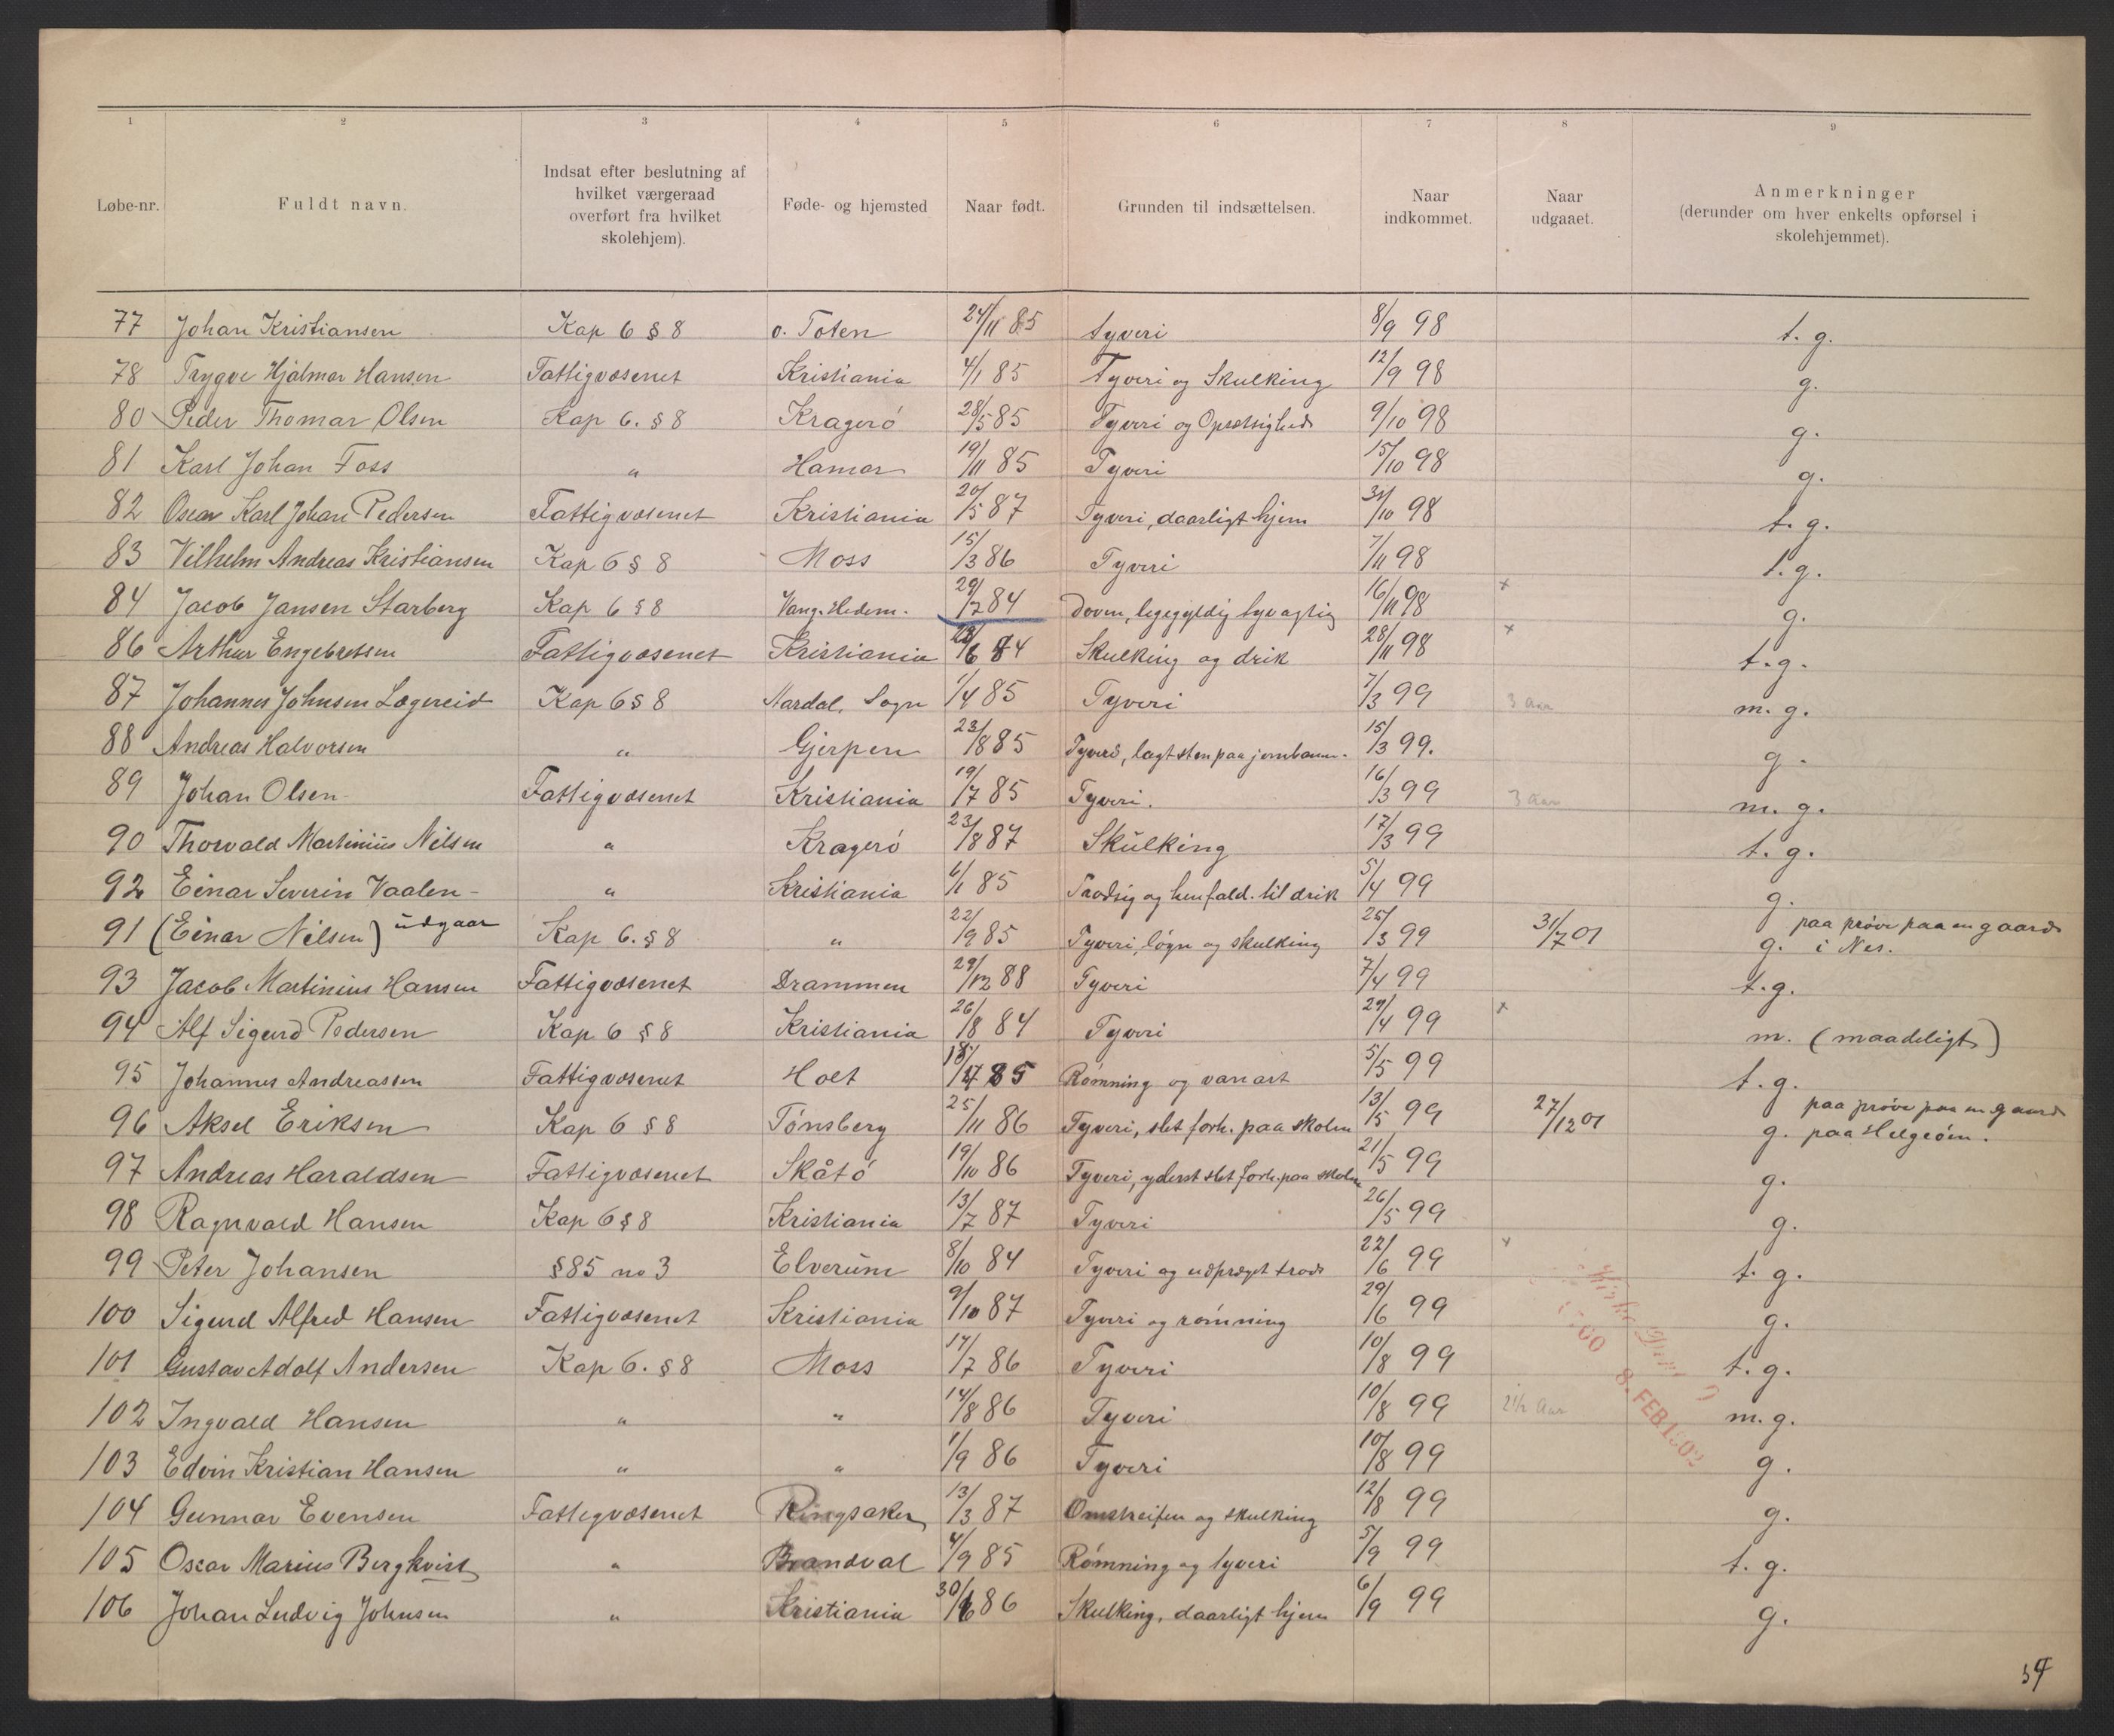 1 2 3 4 5 6 7 8 9
Løbe-nr. Fuldt navn. Indsat efter beslutning af hvilket værgeraad overført fra hvilket skolehjem). Føde- og hjemsted Naar født. Grunden til indsættelsen. Naar indkommet. Naar udgaaet. Anmerkninger (derunder om hver enkelts opførsel i skolehjemmet).
77 Johan Kristiansen Kap 6 § 8 o. Toten 24/11 85 Tyveri 8/9 98 t. g.
78 Trygve Hjalmar Hansen Fattigvæsenet Kristiania 4/1 85 Tyveri og Skulking 12/9 98 g.
80 Peder Thomar Olsen Kap 6. § 8 Kragerö 28/5 85 Tyveri og Opsetsighed 9/10 98 g.
81 Karl Johan Foss " Hamar 19/11 85 Tyveri 15/10 98 g.
82 Oscar Karl Johan Pedersen Fattigvæsenet Kristiania 20/5 87 Tyveri, daarligt hjem 31/10 98 t. g.
83 Vilhelm Andreas Kristiansen Kap 6 § 8 Moss 15/3 86 Tyveri 7/11 98 t. g.
84 Jacob Jansen Starberg Kap 6 § 8 Vang. Hedem. 29/7 84 Doven, legegyldig tyvagtig 16/11 98 x g.
86 Arthur Engebretsen Fattigvæsenet Kristiania 6 84 Skulking og drik 28/11 98 x t. g.
87 Johannes Johnsen Lægereid Kap 6 § 8 Aardal, Sogn 1/4 85 Tyveri 7/3 99 3 aar m. g.
88 Andreas Halvorsen " Gjerpen 23/8 85 Tyveri, lagt sten paa jernbanen. 15/3 99. g.
89 Johan Olsen Fattigvæsenet Kristiania 19/7 85 Tyveri. 16/3 99 3 aar m. g.
90 Thorvald Martinius Nilsen " Kragerö 23/8 87 Skulking 17/3 99 t. g.
92 Einar Severin Vaalen " Kristiania 6/1 85 Trodsig og henfald. til drik 5/4 99 g.
91 (Einar Nilsen) udgaar Kap 6. § 8 " 22/9 85 Tyveri, lögn og skulking 25/3 99 31/7 01 g. paa pröve paa en gaard i Nes.
93 Jacob Martinius Hansen Fattigvæsenet Drammen 29/12 88 Tyveri 7/4 99 t. g.
94 Alf Sigurd Pedersen Kap 6 § 8 Kristiania 26/8 84 Tyveri 29/4 99 x m. (maadeligt)
95 Johannes Andreassen Fattigvæsenet Holt 18/ 85 Römning og vanart 5/5 99 t. g.
96 Aksel Eriksen Kap 6 § 8 Tönsberg 25/11 86 Tyveri, slet forh. paa skolen 13/5 99 27/12 01 g. paa pröve paa en gaard paa Helgeöen.
97 Andreas Haraldsen Fattigvæsenet Skåtö 19/10 86 Tyveri, yderst slet forh. paa skolen 21/5 99 g.
98 Ragnvald Hansen Kap 6 § 8 Kristiania 13/7 87 Tyveri 26/5 99 g.
99 Peter Johansen § 85 no 3 Elverum 8/10 84 Tyveri og udpræget trods 22/6 99 x t. g.
100 Sigurd Alfred Hansen Fattigvæsenet Kristiania 9/10 87 Tyveri og römning 29/6 99 g.
101 Gustav Adolf Andersen Kap 6. § 8 Moss 17/7 86 Tyveri 10/8 99 t. g.
102 Ingvald Hansen " " 14/8 86 Tyveri 10/8 99 2 1/2 aar m. g.
103 Edvin Kristian Hansen " " 1/9 86 Tyveri 10/8 99 g.
104 Gunnar Evensen Fattigvæsenet Ringsaker 13/3 87 Omstreifen og skulking 12/8 99 g.
105 Oscar Marius Bergkvist " Brandval 4/9 85 Römning og tyveri 5/9 99 t. g.
106 Johan Ludvig Johnsen " Kristiania 30/6 86 Skulking, daarligt hjem 6/9 99 g.
8. FEB. 1902